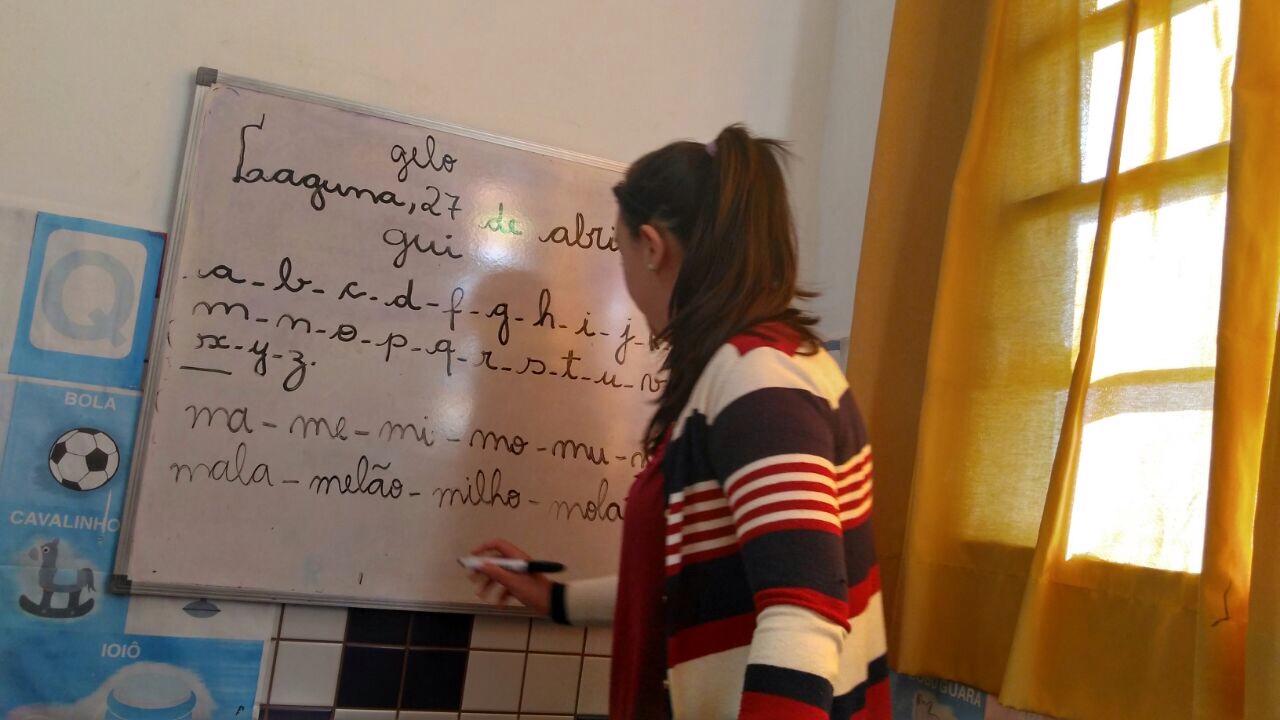 gelo
Laguna, 27 de abri
gui
a - b - c - d - f - g - h - i - j -
m - n - o - p - q - r - s - t - u - v
x - y - z.
ma - me - mi - mo - mu -
mala - melão - milho - mola
Q
BOLA
CAVALINHO
IOIÔ